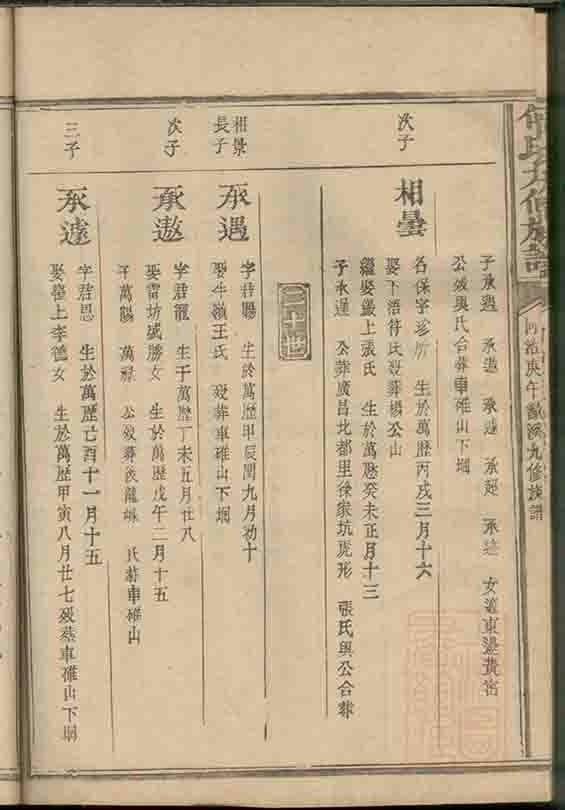 氏九修族譜
同治庚午 九修族譜
子承遇 承遨 承遽 承 承 女適東港黃
公 與氏合葬車碓山下堋
次子
相曇
名保字 生於萬歷丙戌三月十六
娶下浯符氏 葬楊公山
繼娶嚴上張氏 生於萬歷癸未正月十三
子承運 公葬廣昌北都里徐家坑虎形 張氏與公合葬
三十世
相景長子
承遇
字君賜 生於萬歷甲辰閏九月初十
娶牛嶺王氏 歿葬車碓山下堋
次子
承遨
字君寵 生于萬歷丁未五月廿八
娶雷坊盛勝女 生於萬歷戊午二月十五
子萬賜 萬祿 公歿葬後龍 氏葬車碓山
三子
承遽
字君恩 生於萬歷己酉十一月十五
娶 上李德女 生於萬歷甲寅八月廿七歿葬車碓山下堋